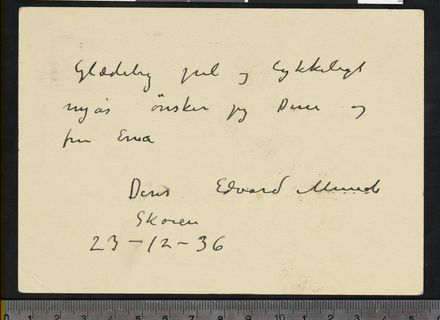 Glædelig jul og lykkeligt
nyår ønsker jeg Dem og
fru Erna
Deres Edvard Munch
Skøien
23-12-36